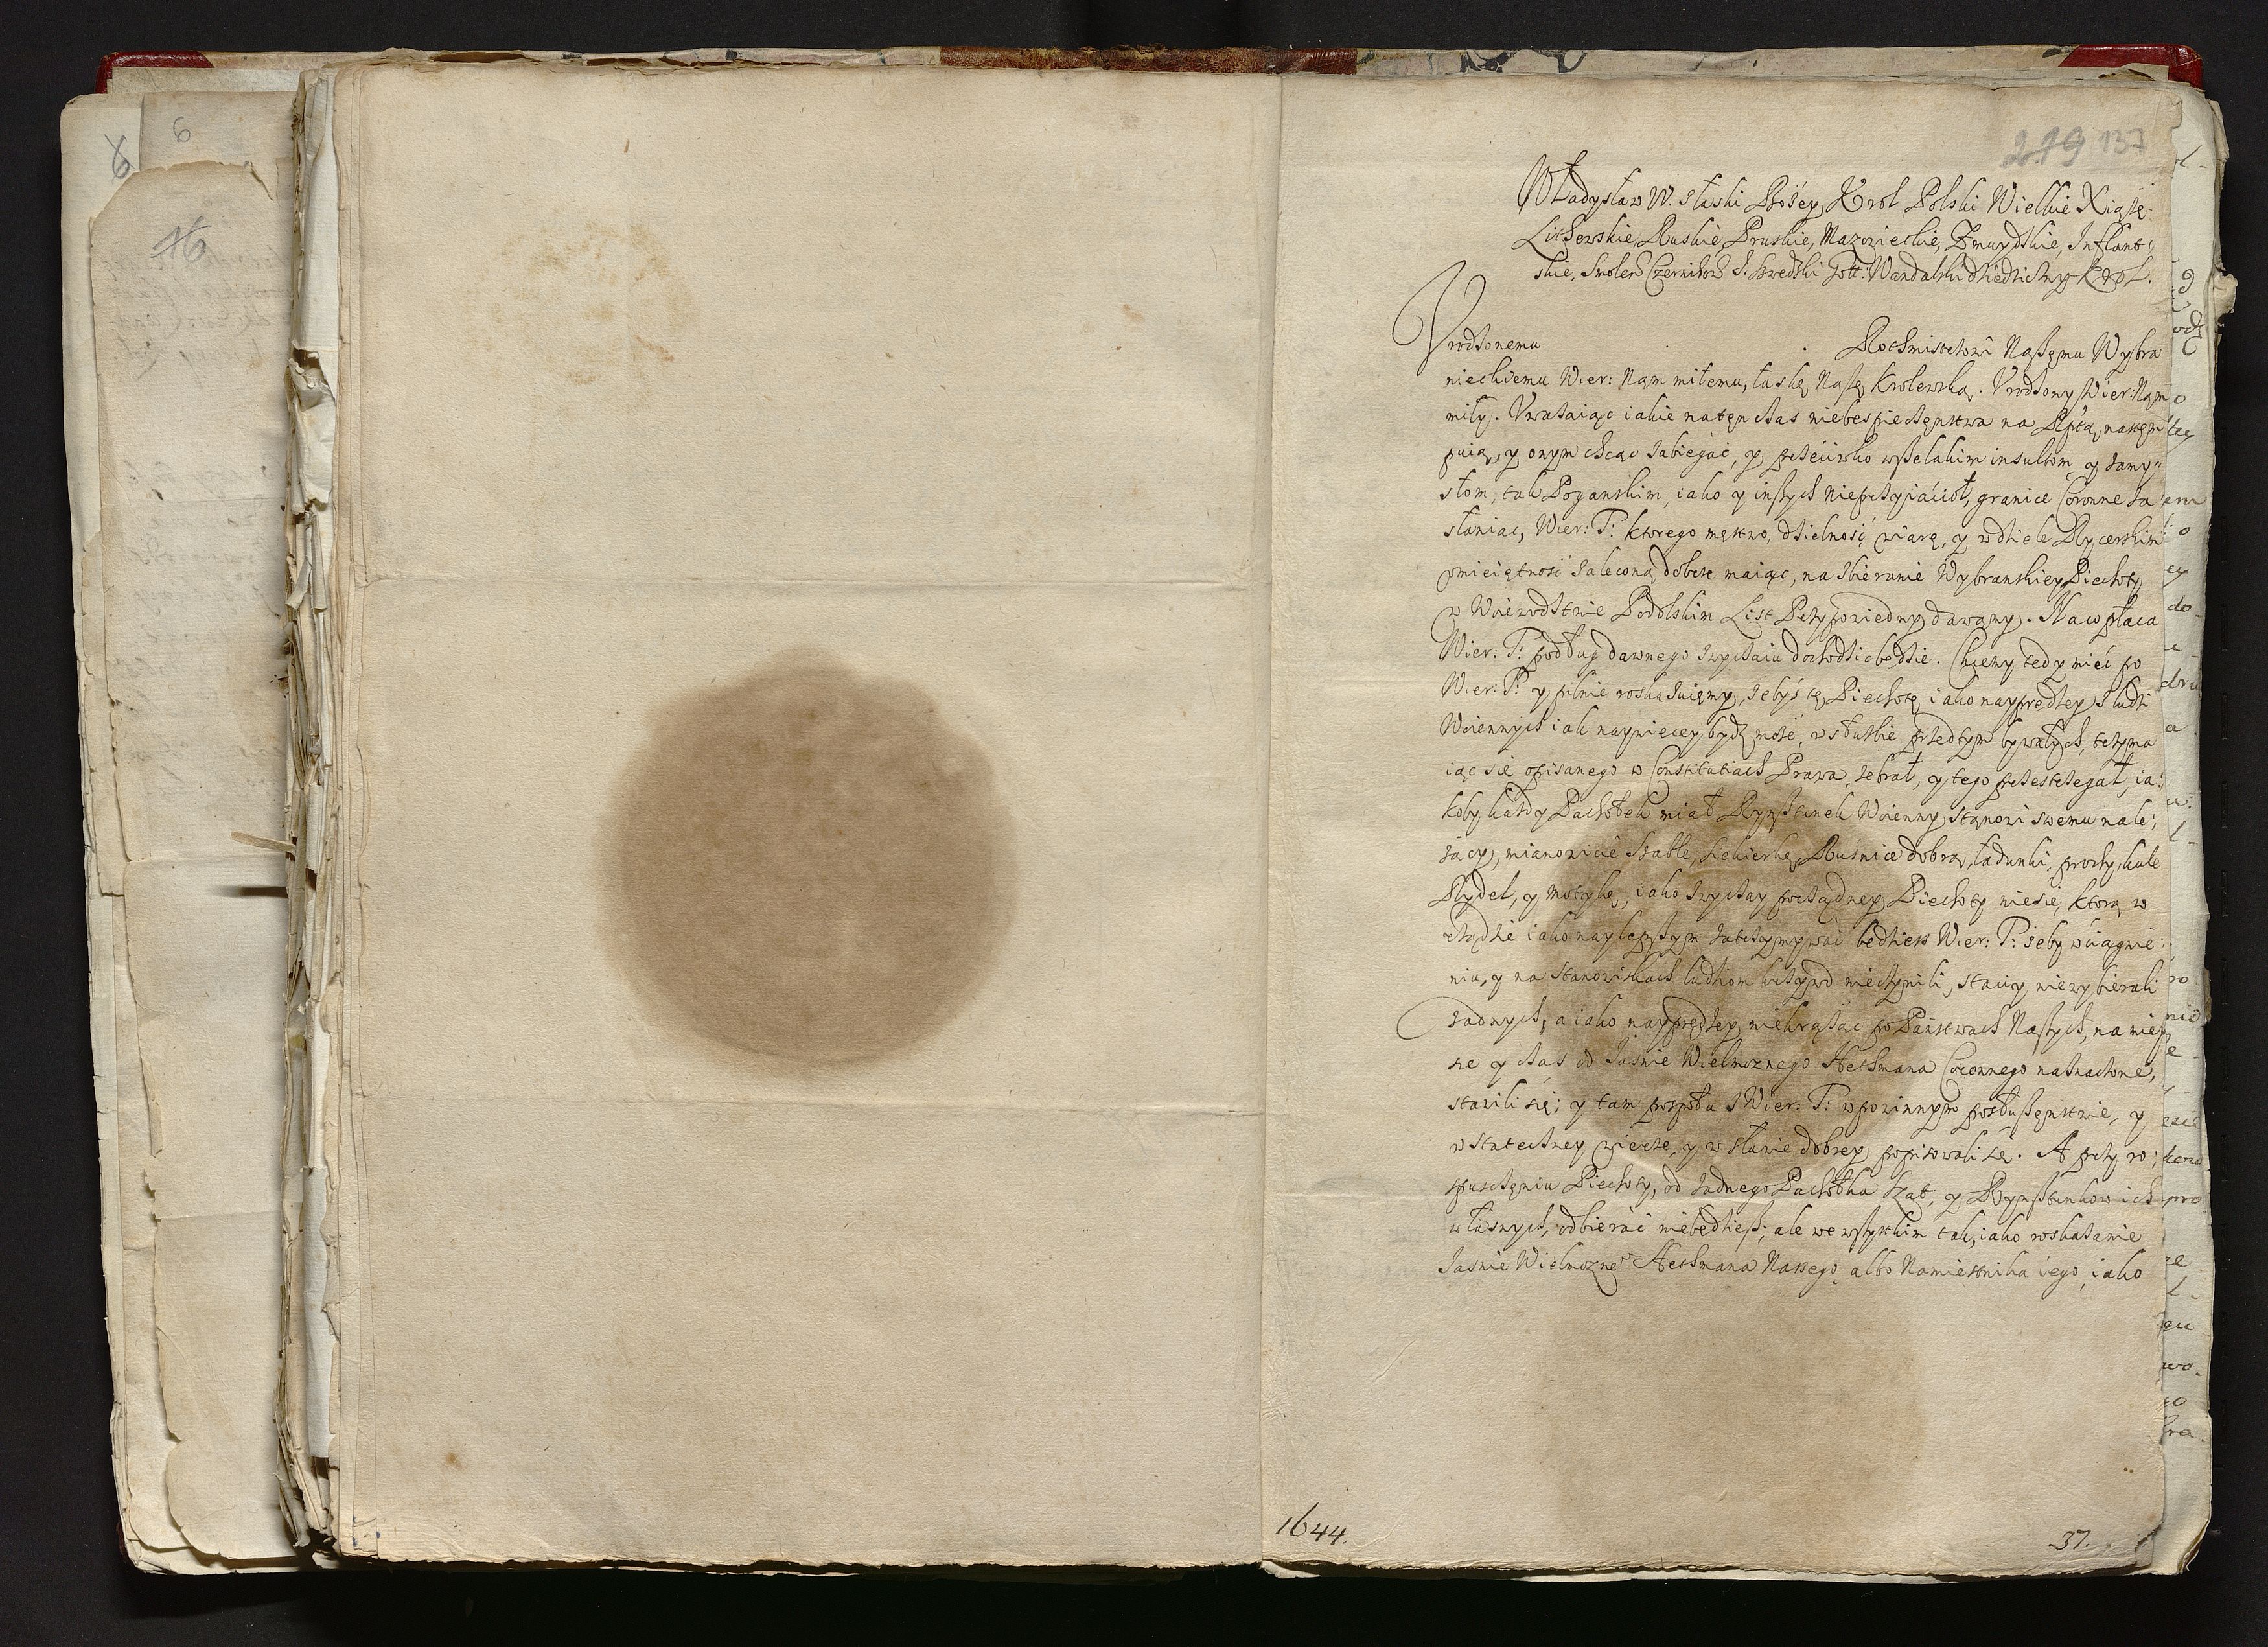 8
6
16
219 137
Władysław IV. z łaski Bożey Krol Polski Wielkie Xiążę
Lithewskie, Ruskie, Pruskie, Mazowieckie, Zmuydzkie, Inflant„
skie, Smoleń: Czernihow: A. Szwedzki Gott: Wandalski dziedziczny Krol.
Vrodzonemu Rothmistrzowi Naszęmu Wybra
nieckiemu Wier: Nąm miłemu, łaskę Naszę Krolewską. Vrodzony Wier: Nąm
miły. Vważaiąc iakie natęn czas niebespieczęnstwa na Rptą nastęm
puią, y onym chcąc zabiegać, y przećiwko wszelakim insultom, y zamy„
słom, tak Poganskim, iako y inszych nieprzyiaćioł, granice Coronne za
słaniac, Wier: T: ktorego męstwo, dzielność, wiarę, y w dziele Rycerskim
vmieiętność zaleconą dobrze maiąc, na zbieranie Wybranskiey Piechoty
w Woiewodztwie Podolskim List Przypowiedny dawąmy. Na co płaca
Wier: T: podług dawnego zwyczaiu dochodzic będzie. Chcemy tedy mieć po
Wier: T: y pilnie roskazuięmy, żebyś tę Piechotę iako nayprędzey z ludzi
Woiennych iak naywięcey bydź może, w służbie przedtym bywałych, trzyma
iąc się opisanego w Constitutiach Prawa, zebrał, y tego przestrzegał, ia:
koby każdy Pachołek miał Rynsztunek Woienny stąnowi swemu nale:
żący, mianowićie Szable, siekierkę, Ruśnice dobrą, ładunki, prochy, kule
Rydel, y Motykę, iako zwyczay porządney Piechoty niesie, ktorą w
rządzie iako naylepszym zatrzymywać będziesz Wier: T: żeby w ćiągnie:
niu, y na Stanowiskach ludziom krzywd nieczynili, Stacÿ niewybierali
żadnych, a iako nayprędzey niekrążąc po Państwach Naszych, na miey
sce y czas od Jaśnie Wielmoznego Hethmana Coronnego naznaczone,
stawili się; y tam pospołu z Wier: T: w powinnym posłuszęnstwie, y
w stateczney wierze, y w sławie dobrey popisowali się. A przy ro:
spusczęniu Piechoty, od żadnego Pachołka szat, y Rynsztunkow ich
własnych, odbierać niebędziesz; ale we wszytkim tak, iako roskazanie
Jasnie Wielmozneo Hethmana Naszego, albo Namiestnika iego, iako
1644.
37.